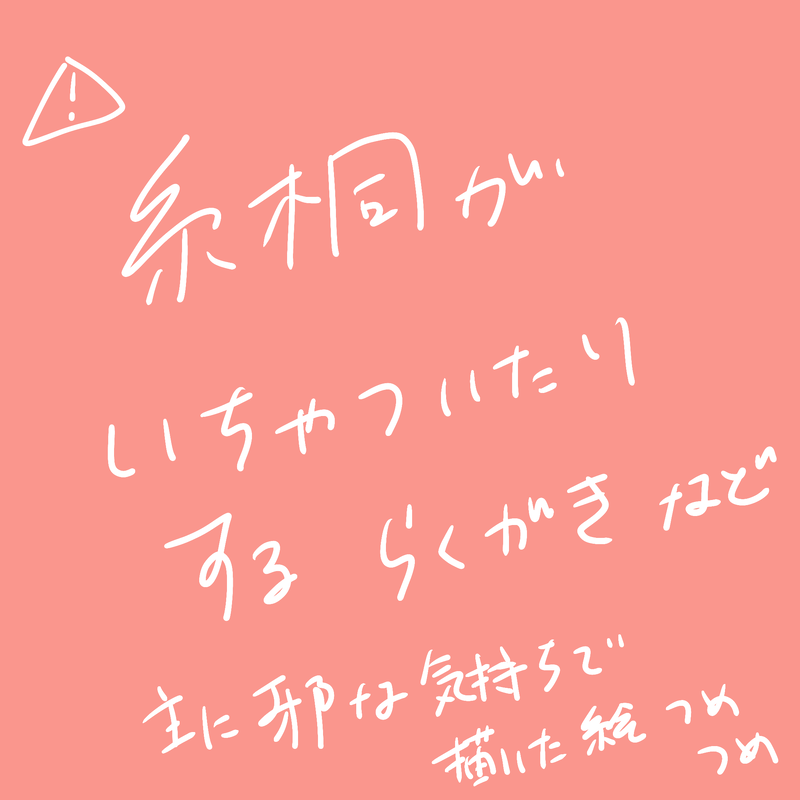 糸桐が
いちゃついたり
する らくがき など
主に邪な気持ちで
描いた絵 つめ
つめ